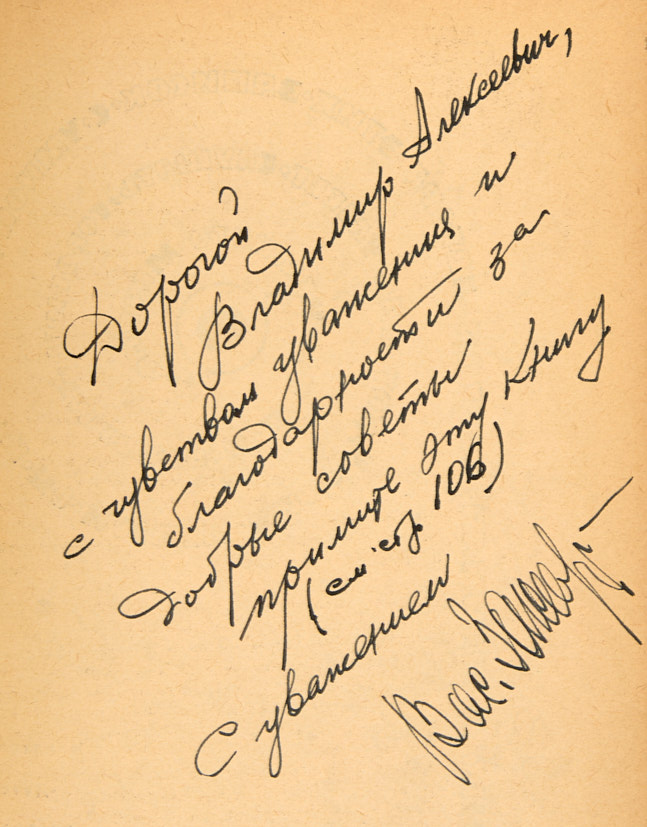 Дорогой
Владимир Алексеевич,
с чувством уважения и
благодарности за
добрые советы
примите эту книгу
(см. стр. 106)
С уважением
Вас.